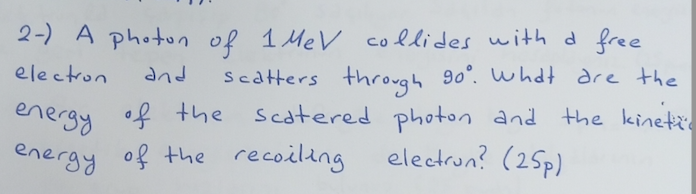 2-) A photon of 1 MeV collides with a free
electron and scatters through 90°. What are the
energy of the scatered photon and the kinetic
energy of the recoiling electron? (25p)